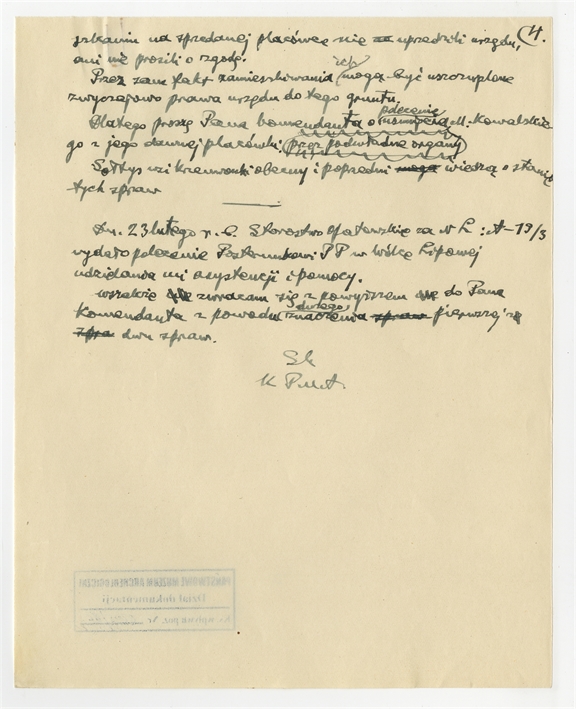 4.
szkaniu na sprzedanej placówce nie uprzedzili urzędu,
ani nie prosili o zgodę.
Przez sam fakt zamieszkiwania ich mogą być uszczuplone
zwyczajowo prawa urzędu do tego gruntu.
Dlatego proszę Pana komendanta o polecenie M. Kowalskie
go z jego dawnej placówki przez podwładne organy
Sołtys wsi Krzemionki obecny i poprzedni wiedzą o stanie
tych spraw
Dn. 23 lutego r. b. Starostwo Opatowskie za N L : A-19/3
wydało polecenie Posterunkowi PP w Wólce Lipowej
udzielania mi asystencji i pomocy.
wszakże zwracam się z powyższem do Pana
Komendanta z powodu dużego znaczenia pierwszej z
dwu spraw.
PAŃSTWOWE MUZEUM ARCHEOLOGICZNE
Dział dokumentacji